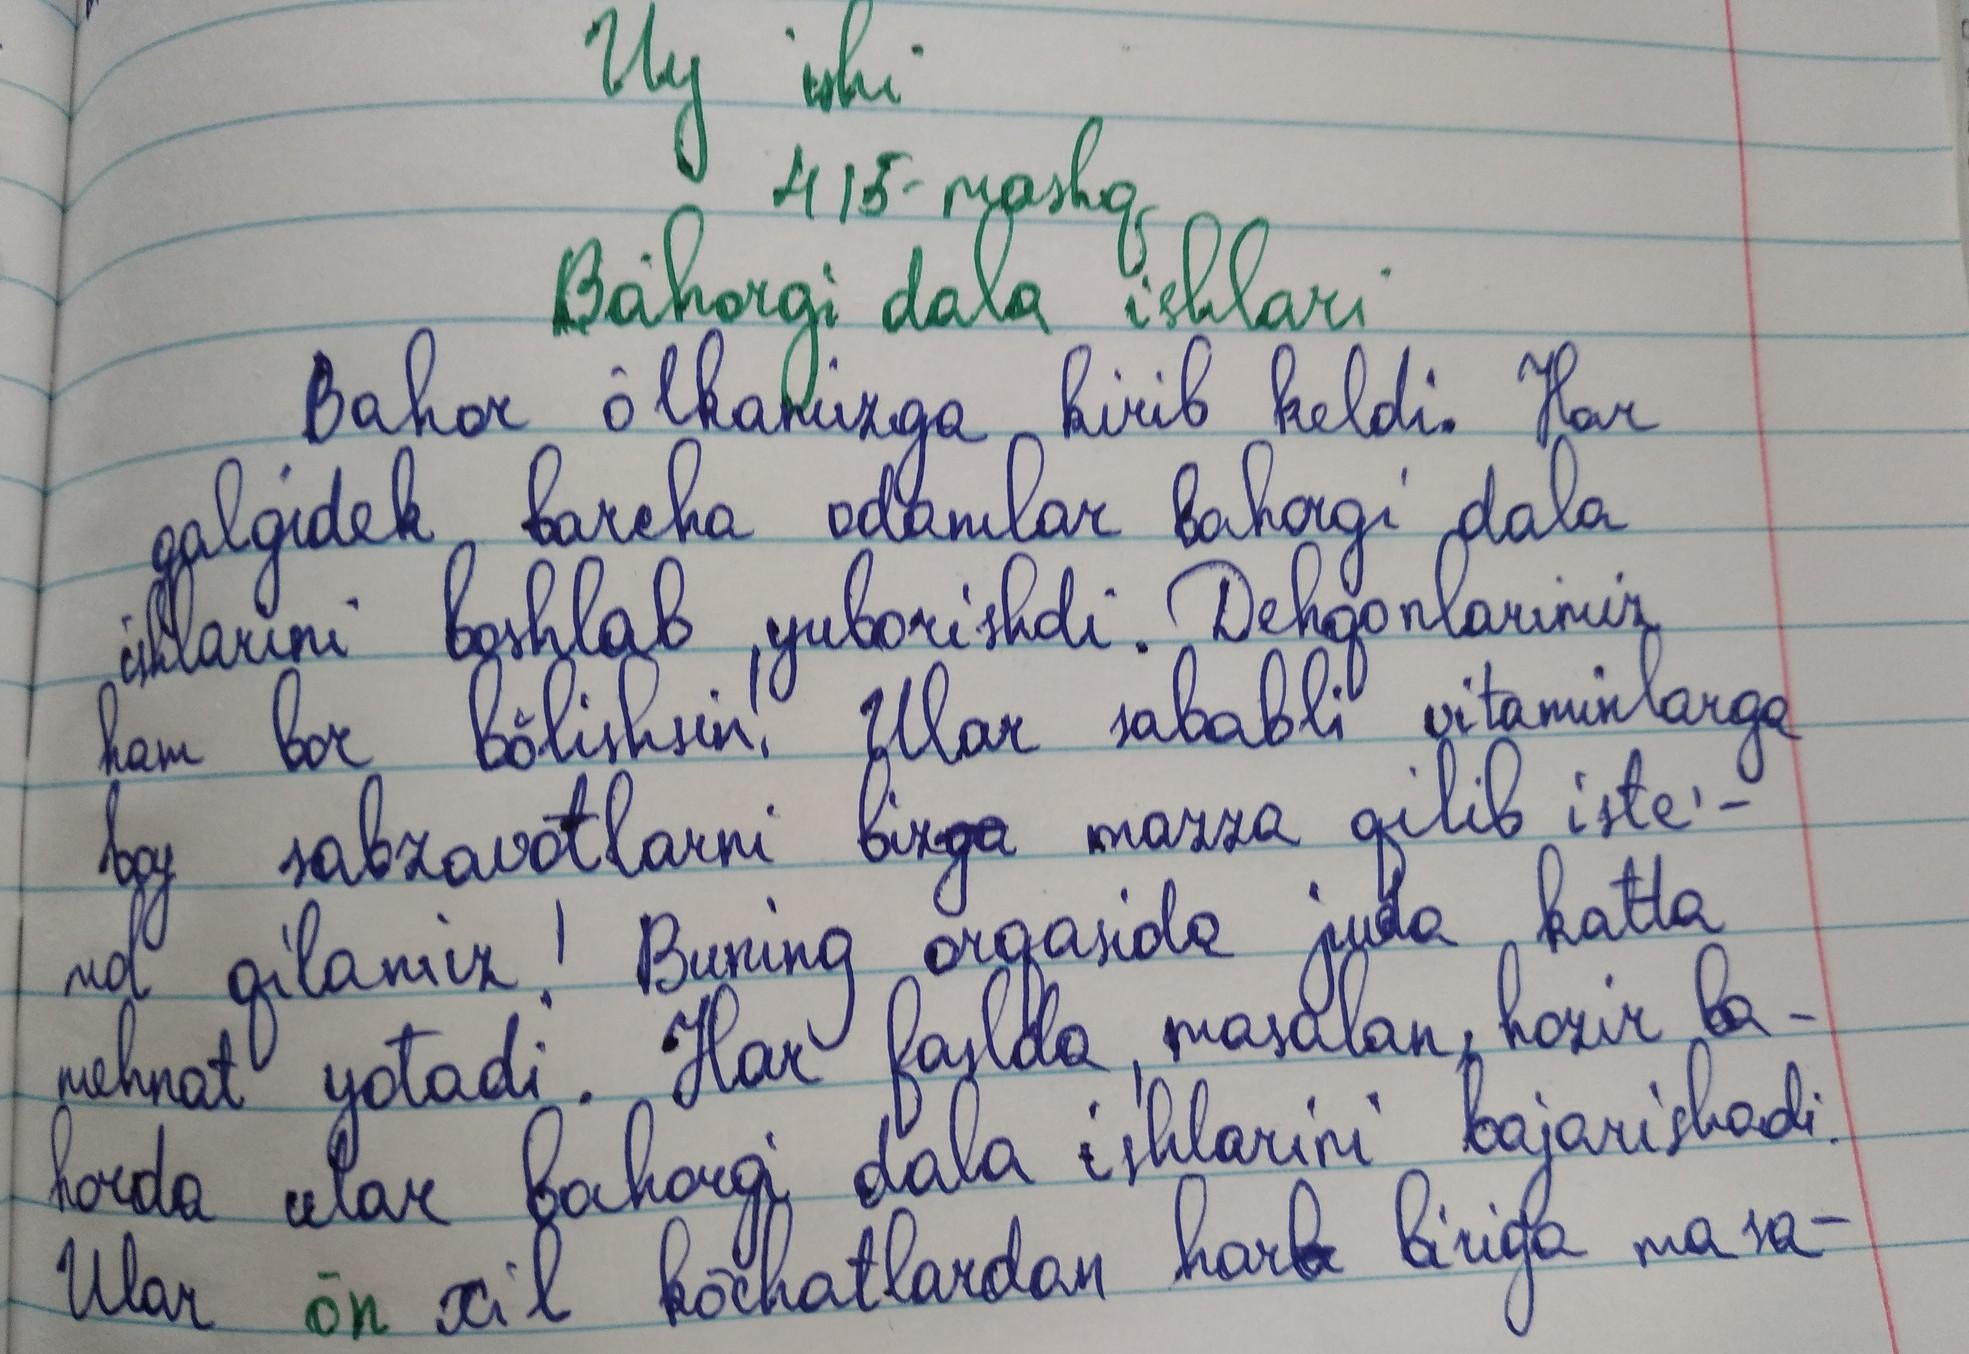 Uy ishi
415-mashq
Bahorgi dala ishlari
Bahor ôlkamizga kirib keldi. Har
galgidek barcha odamlar bahorgi dala
ishlarini boshlab yuborishdi. Dehqonlarimiz
ham bor bôlishsin! Ular sababli vitaminlarga
boy sabzavotlarni bizga mazza qilib iste'-
mol qilamiz! Buning orqasida juda katta
mehnat yotadi. Har faslda, masalan, hozir ba-
horda ular bahorgi dala ishlarini bajarishadi.
Ular ôn xil kôchatlardan har biriga masa-